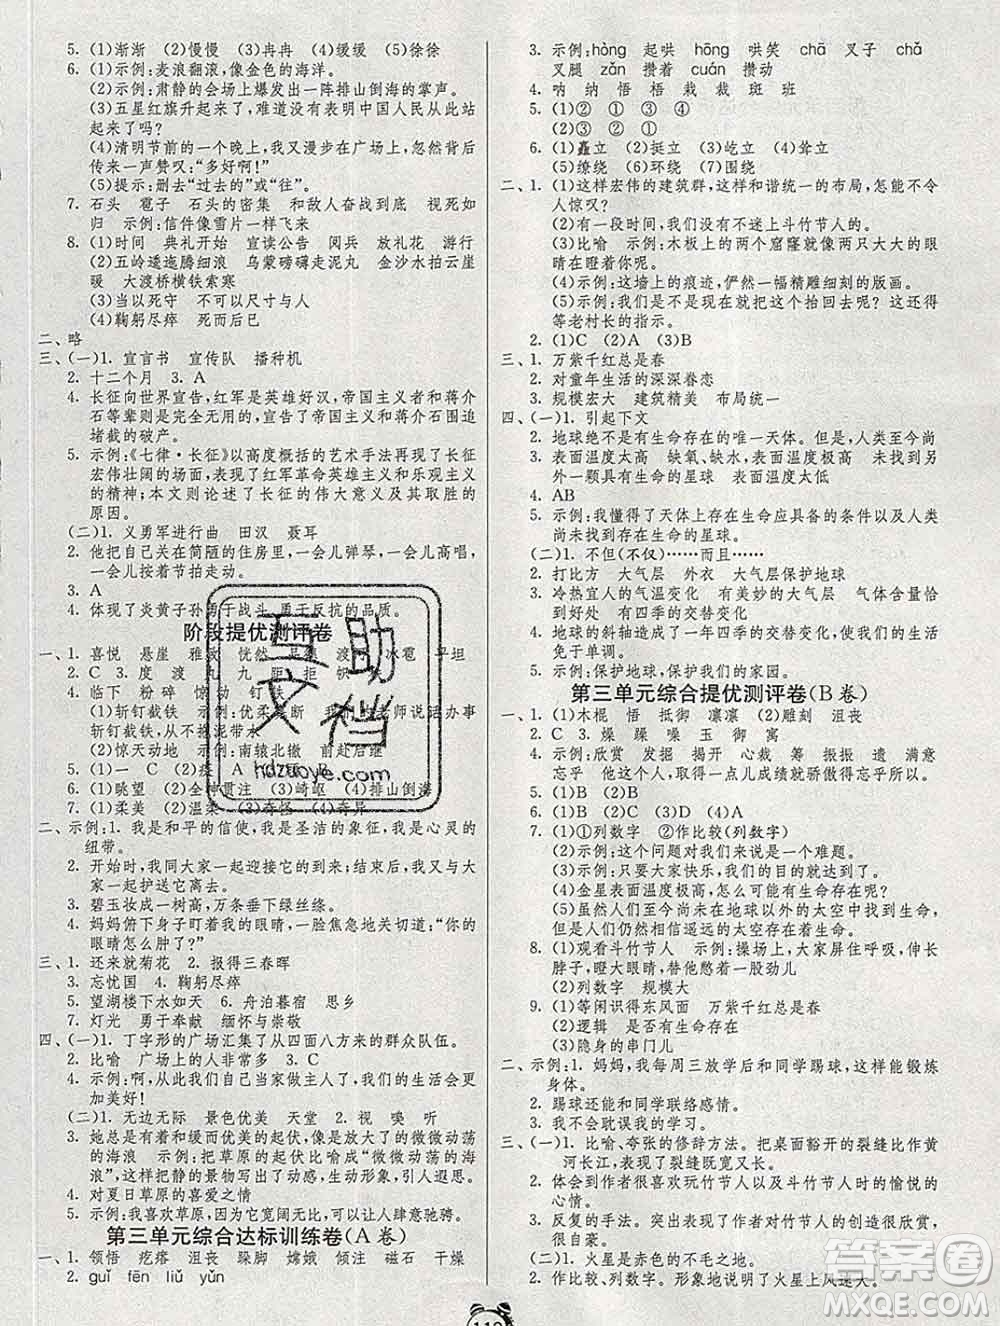 5. (1)渐渐　(2)慢慢　(3)冉冉　(4)缓缓　(5)徐徐
6. (1)示例:麦浪翻滚,像金色的海洋。
(2)示例:肃静的会场上爆发出一阵排山倒海的掌声。
(3)五星红旗升起来了,难道没有表明中国人民从此站
起来了吗?
(4)清明节前的一个晚上,我又漫步在广场上,忽然背后
传来一声赞叹:“多好啊!”
(5)提示:删去“过去的”或“往”。
7. 石头　雹子　石头的密集　和敌人奋战到底　视死如
归　示例:信件像雪片一样飞来
8. (1)时间　典礼开始　宣读公告　阅兵　放礼花　游行
(2)五岭逶迤腾细浪　乌蒙磅礴走泥丸　金沙水拍云崖
暖　大渡桥横铁索寒
(3)当以死守　不可以尺寸与人
(4)鞠躬尽瘁　死而后已
二、略
三、(一)1. 宣言书　宣传队　播种机
2. 十二个月　3. A
4. 长征向世界宣告,红军是英雄好汉,帝国主义和蒋介
石等辈则是完全无用的,宣告了帝国主义和蒋介石围追
堵截的破产。
5. 示例:《七律·长征》以高度概括的艺术手法再现了长征
宏伟壮阔的场面,表现了红军革命英雄主义和乐观主义
的精神;本文则论述了长征的伟大意义及其取胜的
原因。
(二)1. 义勇军进行曲　田汉　聂耳
2. 他把自己关在简陋的住房里,一会儿弹琴,一会儿高唱,
一会儿按着节拍走动。
3. A
4. 体现了炎黄子孙勇于战斗、勇于反抗的品质。
阶段提优测评卷
一、1. 喜悦　悬崖　雅致　恍然　
冰雹　平坦
2. C　3. 度　渡　丸　九　距　拒　帜
4. 临下　粉碎　
(1)斩钉截铁　示例:优柔寡断　
师说话办事
斩钉截铁,从不拖泥带水
(2)惊天动地　示例:南辕北辙　前赴后继
5. (1)一　C　(2)
6. (1)眺望　(2)全神贯注　(3)崎岖　(4)排山倒海
7. (1)柔美　(2)温柔　(3)奇怪　(4)奇异
二、示例:1. 我是和平的信使,我是圣洁的象征,我是心灵的
纽带。
2. 开始时,我同大家一起迎接它的到来;结束后,我同大
家一起护送它的离去。
3. 碧玉妆成一树高,万条垂下绿丝绦。
4. 妈妈俯下身子盯着我的眼睛,一脸焦急地关切道:“你的
眼睛怎么肿了?”
三、1. 还来就菊花　2. 报得三春晖
3. 忘忧国　4. 鞠躬尽瘁
5. 望湖楼下水如天　6. 舟泊暮宿　思乡
7. 灯光　勇于奉献　缅怀与崇敬
四、(一)1. 丁字形的广场汇集了从四面八方来的群众队伍。
2. 比喻　广场上的人非常多　3. C
4. 示例:啊,今天我们胜利了,我们的生活会变得更
加美好!
(二)1. 无边无际　景色优美　天堂　2. 视　嗅　听
3. 她总是有着和缓而优美的起伏,像是大海的微微动荡
的海浪　示例:把草原的起伏比喻成“微微动荡的海
浪”,这样把静的景物写出了动感,生动形象,引人遐思。
4. 对夏日草原的喜爱之情
5. 示例:我喜欢草原,它辽阔无比,可以让人肆意驰骋。
第三单元综合达标训练卷(A卷)
一、1. 领悟　疙瘩　沮丧　跺脚　嫦娥　倾注　磁石　干燥
2. guǐ　fēn　liǔ　yǔn
3. 示例:hòng　起哄　hōng　哄笑　chā　叉子　chǎ
叉腿　zǎn　攒着　cuán　攒动
4. 呐　纳　悟　梧　栽　裁　斑　班
5. (1)②　①　③　④
(2)③　②　①
6. (1)矗立　(2)挺立　(3)屹立　(4)耸立
(5)缭绕　(6)环绕　(7)围绕
二、1. (1)这样宏伟的建筑群,这样和谐统一的布局,怎能不令
人惊叹?
(2)有一段时间,我们没有不迷上斗竹节人的。
(3)比喻　示例:木板上的两个窟窿就像两只大大的眼
睛在瞪着你呢。
(4)示例:这墙上的痕迹,俨然一幅精雕细刻的版画。
(5)示例:我们是不是现在就把这个抬回去?还得
等老村长的指示。
2. (1)C　(2)A　(3)B
三、1. 示例:万紫千红总是春
2. 对童年生活的深深眷恋
3. 规模宏大　建筑精美　布局统一
四、(一)1. 引起下文
2. 地球绝不是有生命存在的唯一天体。但是,人类至今尚
3. 表面温度太高　缺氧、缺水,表面温度低　未找到
另外一颗有生命的星球　表面温度极高
4. AB
5. 示例:我懂得了天体上存在生命应具备的条件以及人类
尚未找到存在生命的星球。
(二)1. 不但(不仅)……而且……
2. 打比方　大气层　外衣　大气层保护地球
3. 冷热宜人的气温变化　有美妙的大气层　生命体恰
到好处　有四季的交替变化
4. 地球的斜轴造成了一年四季的交替变化,使我们的生活
免于单调。
5. 示例:保护地球,保护我们的家园。
第三单元综合提优测评卷(B卷)
一、1. (1)木棍　悟　抵御　凛凛　(2)雕刻　沮丧
2. C　3. 燥　躁　噪　玉　御　寓
4. 示例:欣赏　发掘　揭开　心裁　筹　振振　遗　满意
忘乎　忘乎所以　示例:不能因为取得一点儿成绩就骄傲得忘乎所以。
5. (1)B　(2)B
6. (1)C　(2)B　(3)D　(4)A
7. (1)①列数字　②作比较(列数字)
(2)示例:这个问题对我们来说是一个难题。
(3)示例:只要大家快乐,我们的目的就达到了。
(4)金星表面温度极高,怎么可能有生命存在呢?
(5)虽然人们至今尚未在地球以外的太空中找到生命,
但是人们仍然相信遥远的太空存在着生命。
8. (1)观看斗竹节人　示例:操场上,大家屏住呼吸,伸长
脖子,瞪大眼睛,紧盯着这场比赛,真带劲儿
(2)列数字　规模大
9. (1)等闲识得东风面　万紫千红总是春
(2)逻辑　是否有生命存在
(3)隐身的串门儿
二、示例:1. 妈妈,我每周三放学后和同学踢球,这样能锻炼
身体。
2. 踢球还能和同学联络感情。
3. 我不会耽误我的学习。
三、(一)1. 比喻、夸张的修辞方法。把桌面豁开的裂缝比作黄
河长江,表现了裂缝既宽又长。
2. 体会到作者喜欢玩斗竹节人以及斗竹节人时的愉悦的
心情。
3. 反复的手法。突出强调了我们对自己的创造很欣赏,
很自豪。
(二)1. 火星是赤色的不毛之地。
2. 作比较、列数字。形象地说明了火星上风速大。
互助文档
hdzuoye.com
答案圈
MXQE.COM